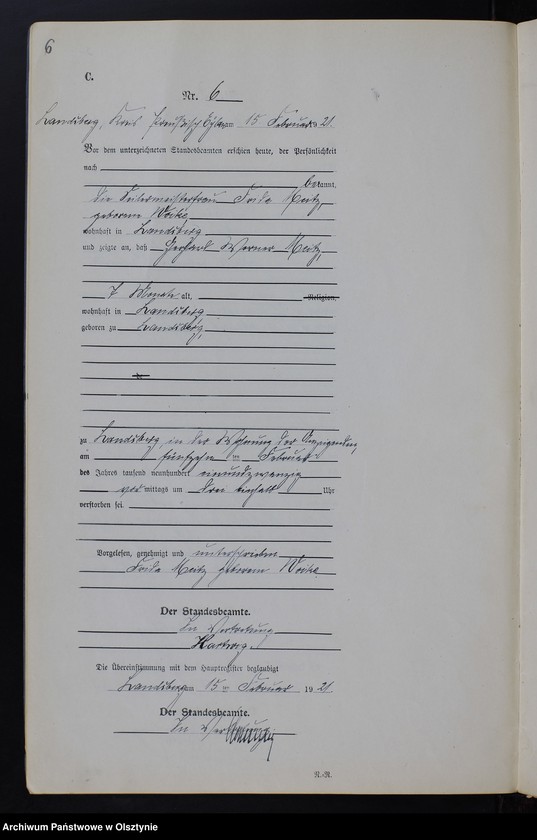 6
C.
Nr. 6
Landsberg, Kreis Preußisch Eylau am 15 Februar 1921.
Vor dem unterzeichneten Standesbeamten erschien heute, der Persönlichkeit
nach
bekannt,
die Frau
geborene
wohnhaft in Landsberg
und zeigte an, daß Gerhard Werner
7 Monate alt, Religion,
wohnhaft in Landsberg,
geboren zu Landsberg,
de
zu Landsberg, in der Wohnung der Anzeigenden,
am fünfzehn ten Februar
des Jahres tausend neunhundert einundzwanzig
vor mittags um drei einhalb Uhr
verstorben sei.
Vorgelesen, genehmigt und unterschrieben
geborene
Der Standesbeamte.
In Vertretung
Hartwig.
Die Übereinstimmung mit dem Hauptregister beglaubigt
Landsberg am 15 ten Februar 1921.
Der Standesbeamte.
In Vertretung
N.-R.
Archiwum Państwowe w Olsztynie